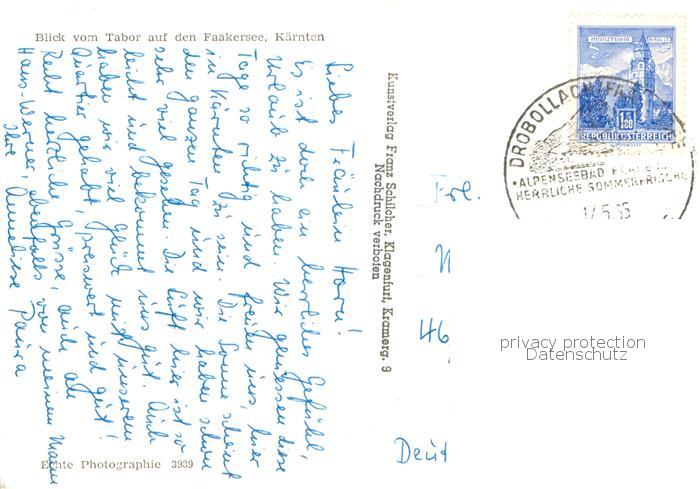 Blick vom Tabor auf den Faakersee, Kärnten
Liebes Fräulein Horn!
Es ist doch ein herrliches Gefühl,
Urlaub zu haben. Wir geniessen diese
Tage so richtig und freuen uns, hier
in Kärnten zu sein. Die Sonne scheint
den ganzen Tag und wir haben schon
sehr viel gesehen. Die Luft hier ist so
leicht und bekommt uns gut. Auch
haben wir viel Glück mit unserem
Quartier gehabt, preiswert und gut!
Recht herzliche Grüsse, auch an
Hans-Werner, ebenfalls von meinem Mann
Ihre Anneliese
Echte Photographie 3939
Kunstverlag Franz Schilcher, Klagenfurt, Kramerg. 9
Nachdruck verboten
MÜNZTURM HALL I. T.
1.80
REPUBLIK ÖSTERREICH
DROBOLLACH
ALPENSEEBAD
HERRLICHE SOMMERFRISCHE
17.5.65
Frl.
46
Deut
privacy protection
Datenschutz